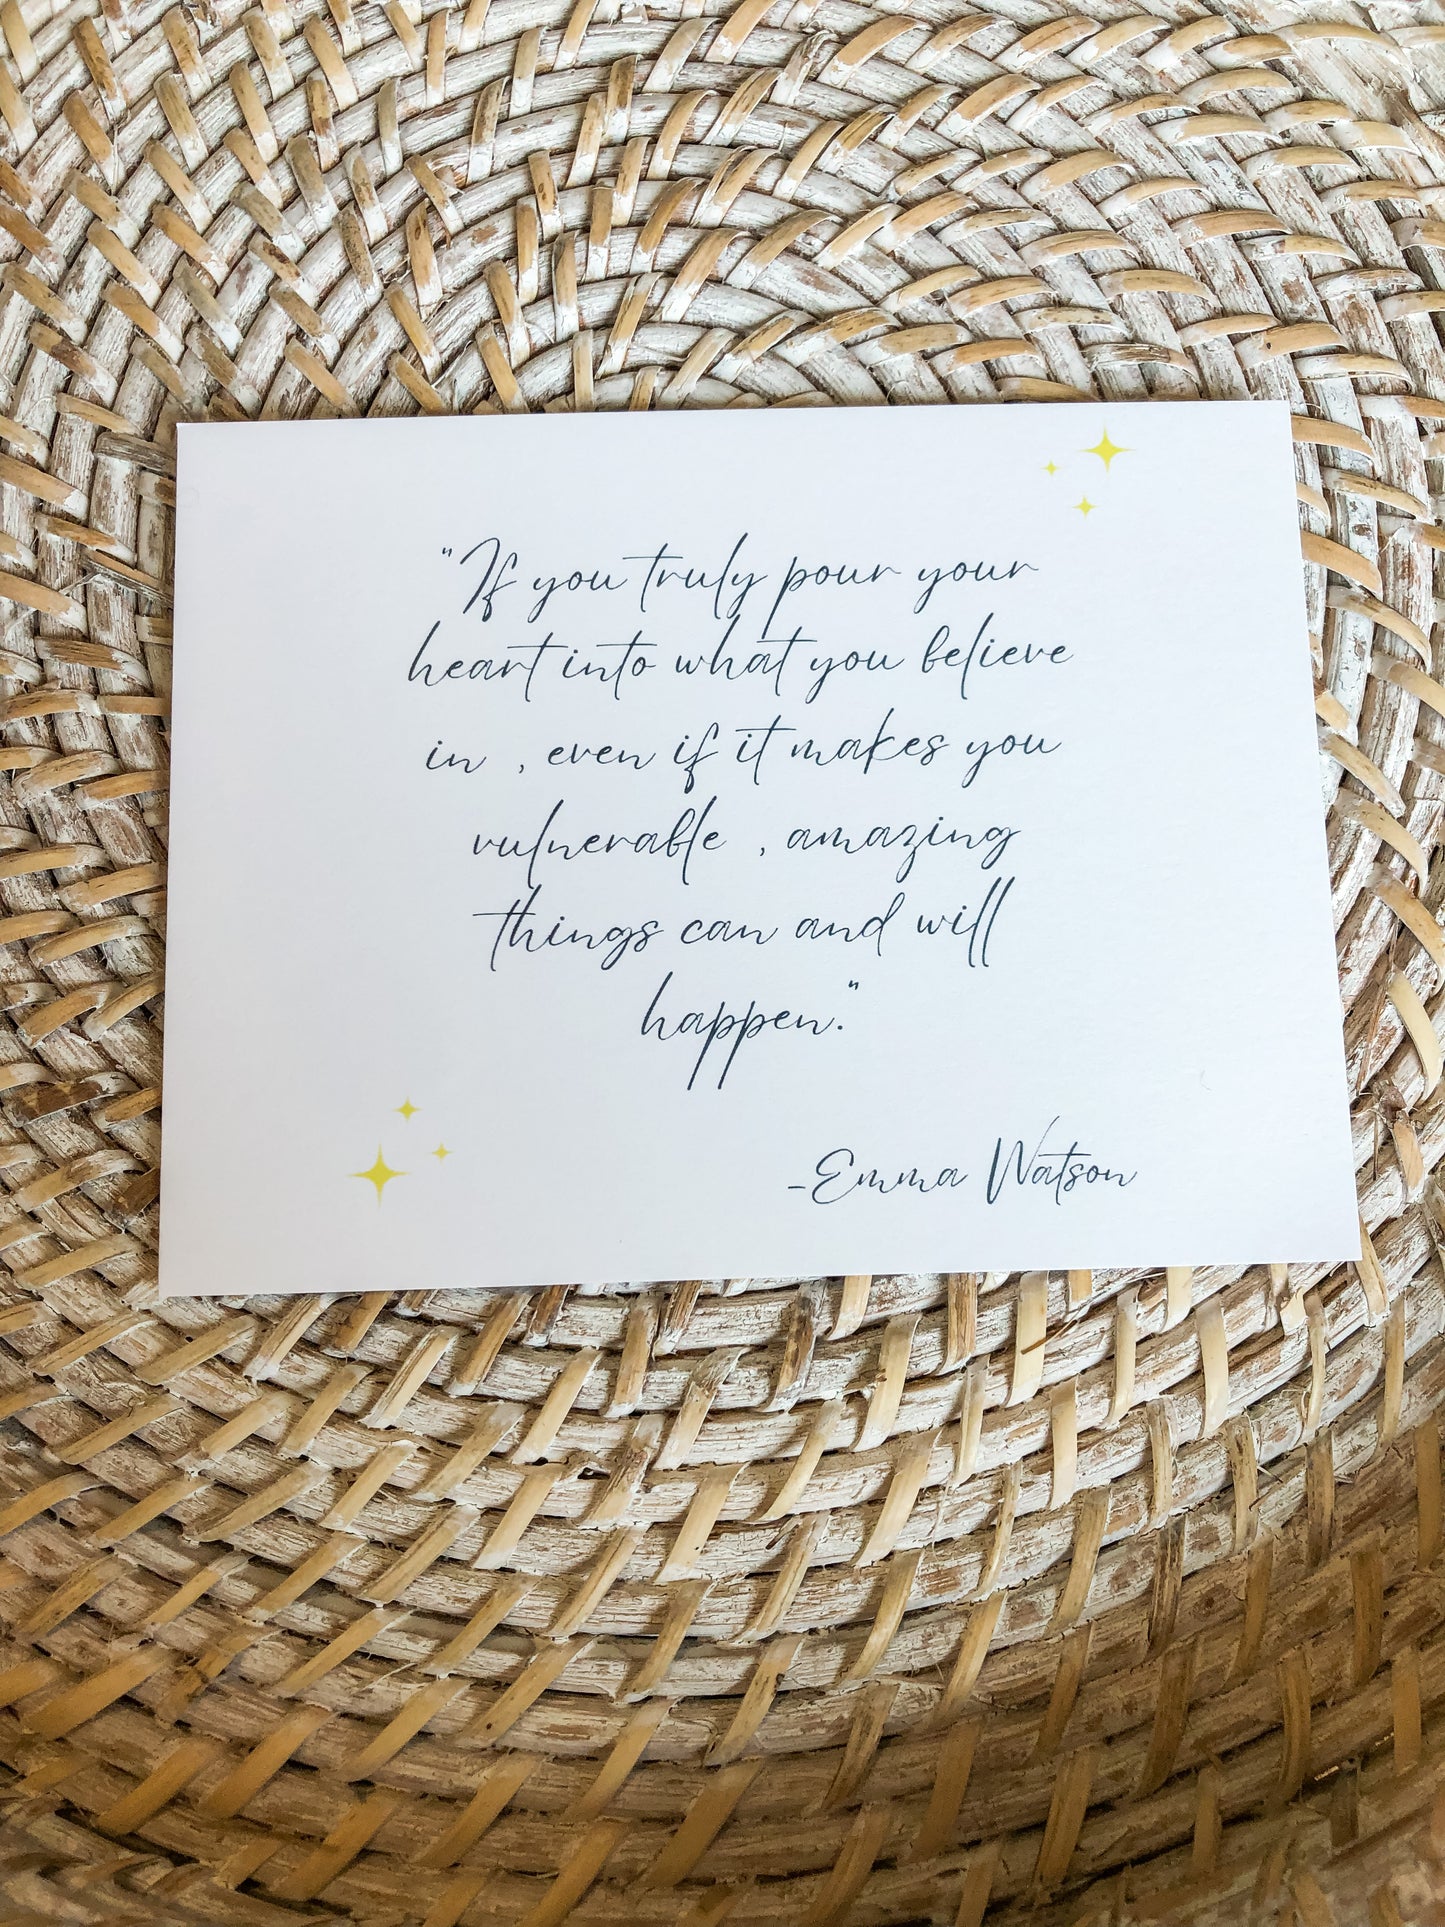 "If you truly pour your
heart into what you believe
in , even if it makes you
vulnerable , amazing
things can and will
happen."
-Emma Watson